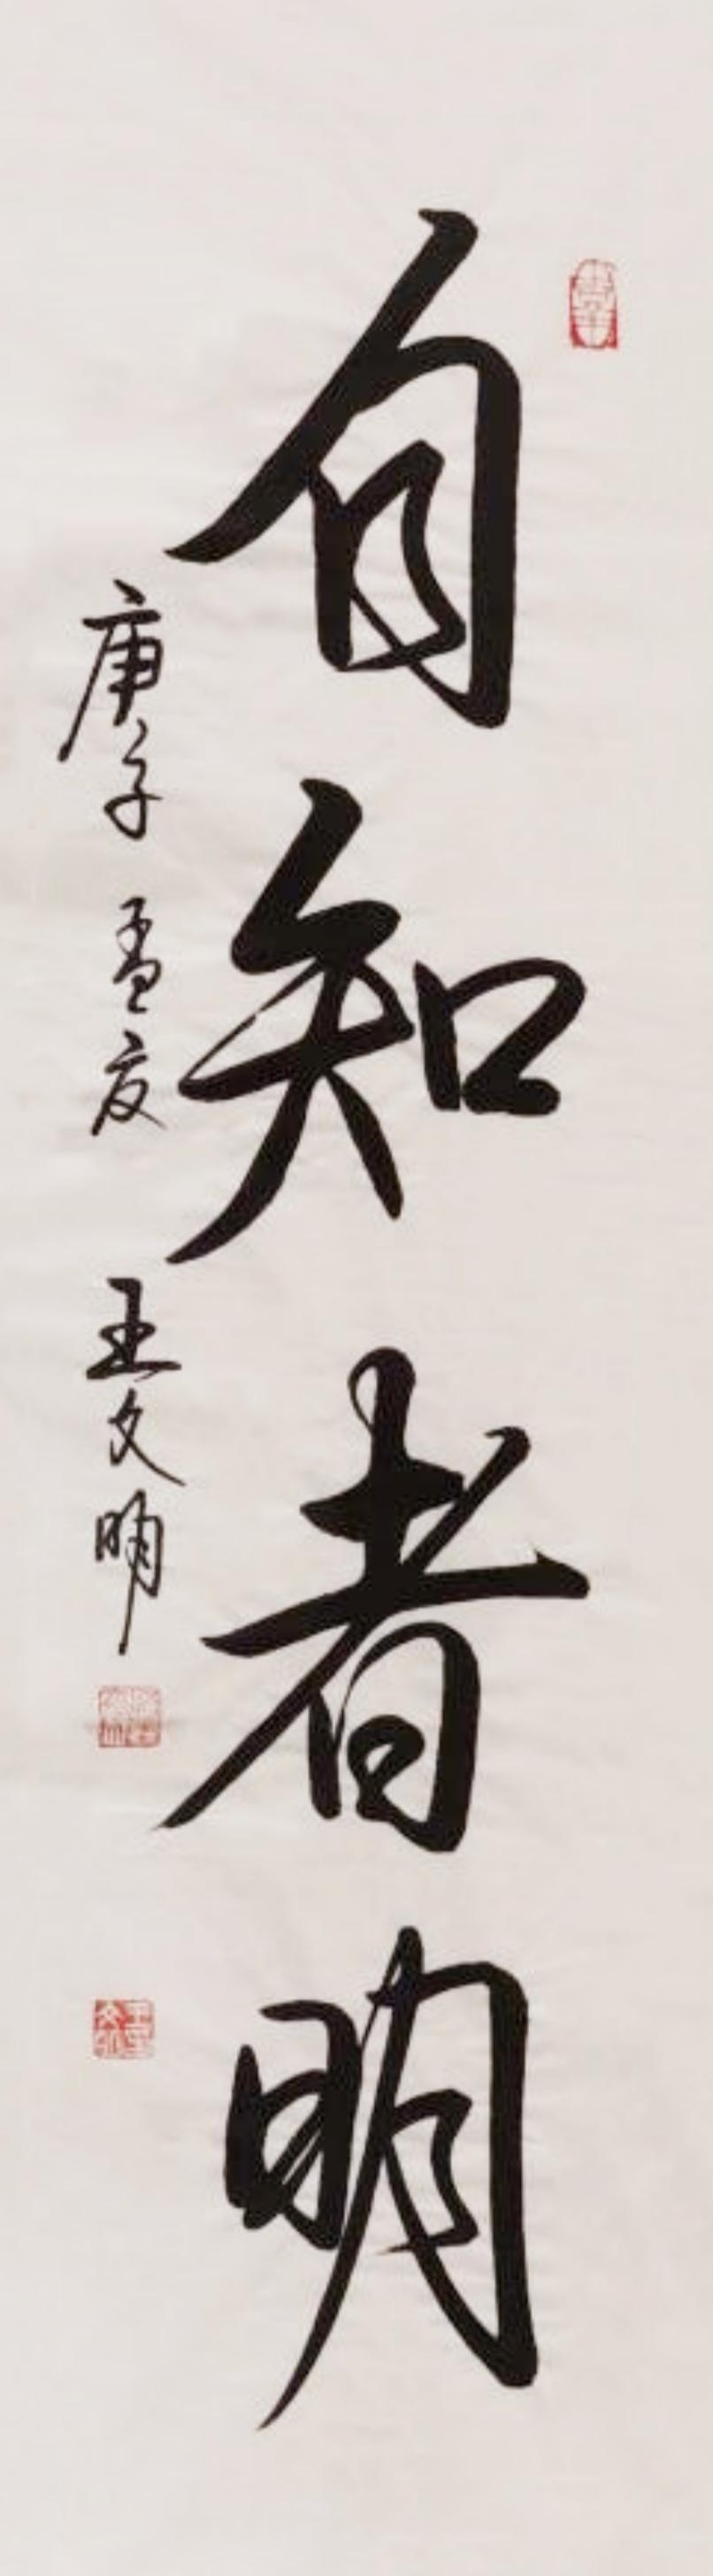 自知者明
庚子 孟夏 王文明